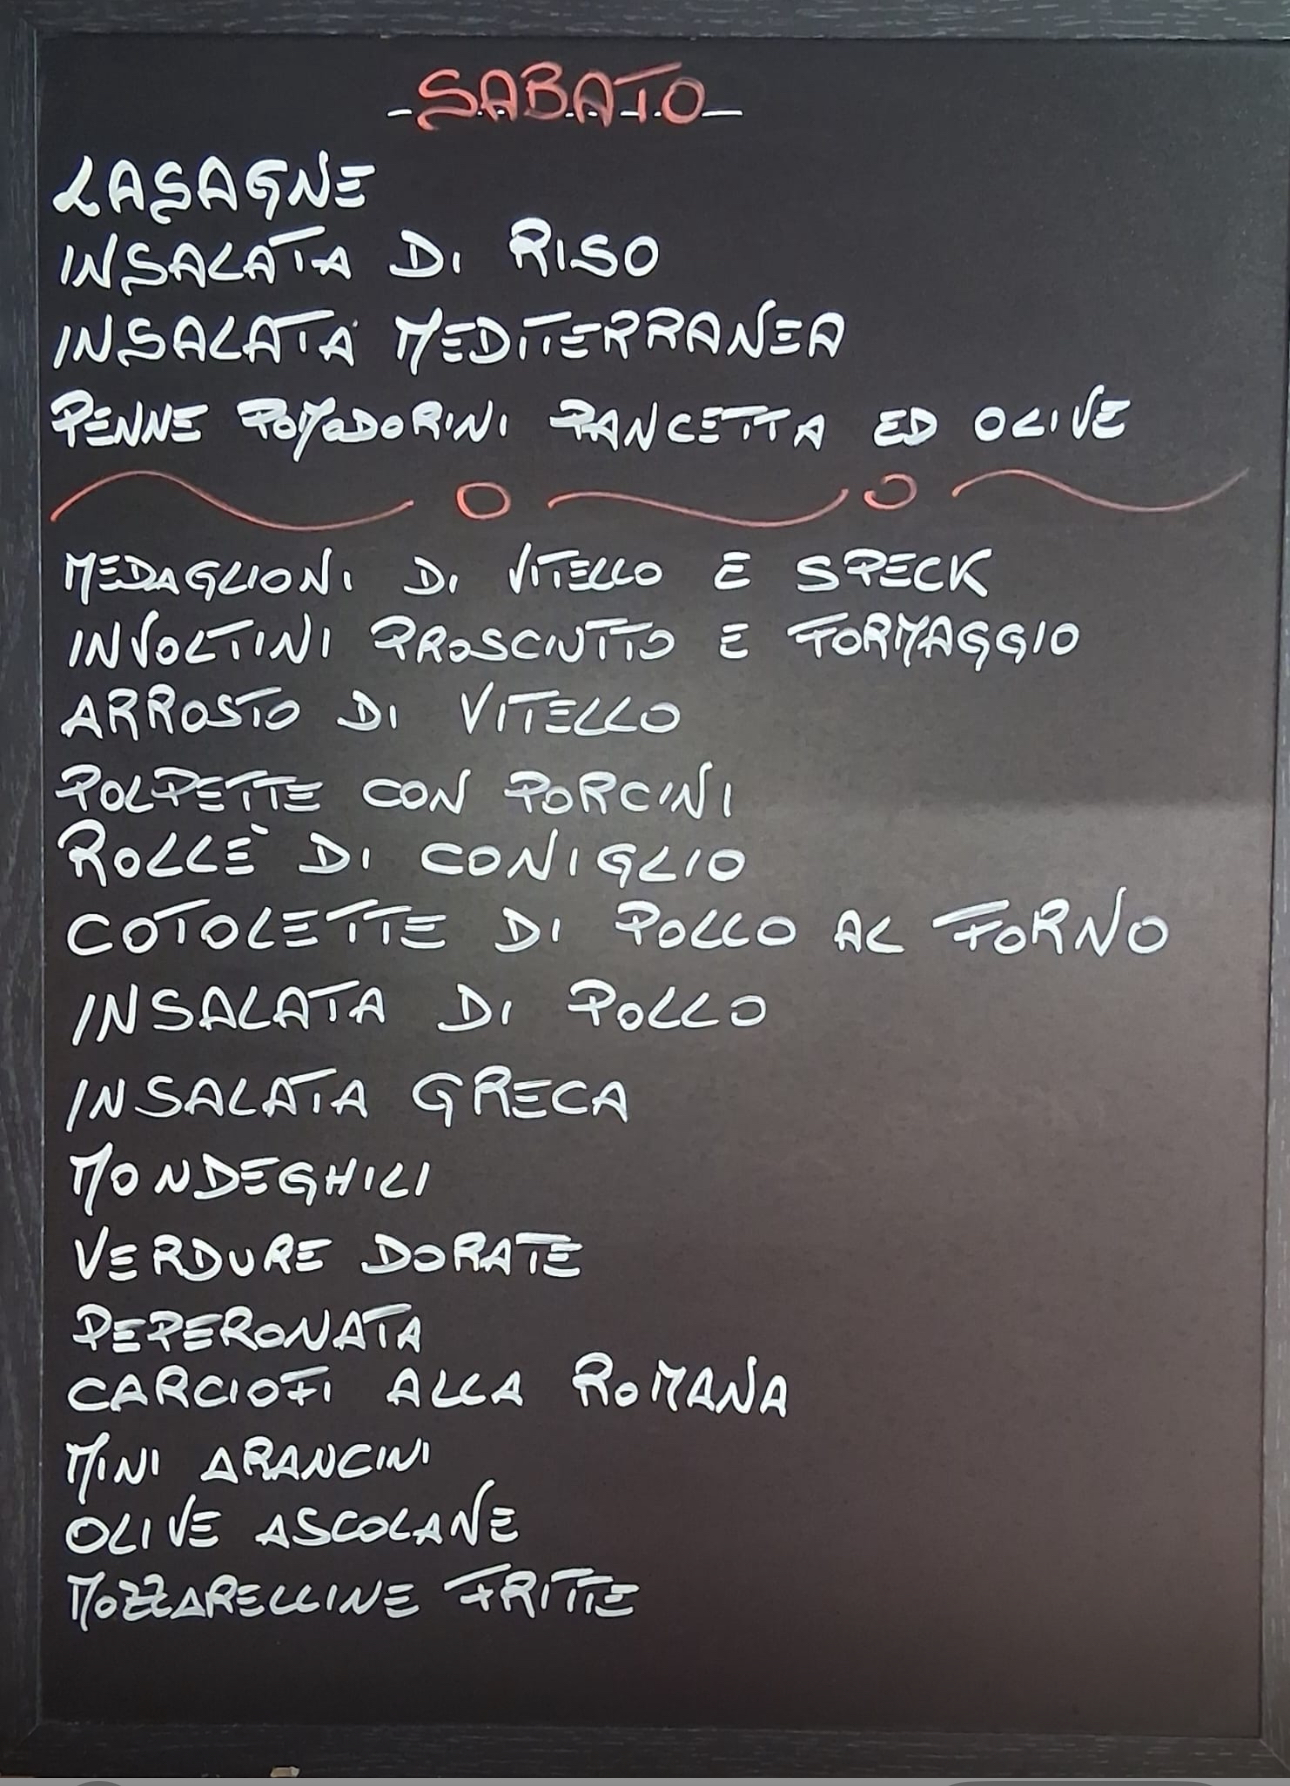 SABATO
LASAGNE
INSALATA DI RISO
INSALATA MEDITERRANEA
PENNE POMODORINI PANCETTA ED OLIVE
MEDAGLIONI DI VITELLO E SPECK
INVOLTINI PROSCIUTTO E FORMAGGIO
ARROSTO DI VITELLO
POLPETTE CON PORCINI
ROLLÈ DI CONIGLIO
COTOLETTE DI POLLO AL FORNO
INSALATA DI POLLO
INSALATA GRECA
MONDEGHILI
VERDURE DORATE
PEPERONATA
CARCIOFI ALLA ROMANA
MINI ARANCINI
OLIVE ASCOLANE
MOZZARELLINE FRITTE